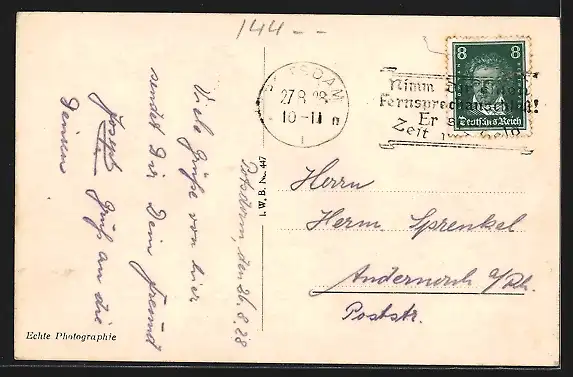 144--
POTSDAM
27.8.28
10-11 n
1
Nimm
Fernsprechanschluß!
Er
Zeit und Geld
8 8
Deutsches Reich
Potsdam, den 26.8.28
Viele Grüße von hier
sendet Dir Dein Freund
Josef Gruß an die
Deinen
I. W. B. No. 447
Herrn
Herm. Sprenkel
Andernach a/Rh.
Poststr.
Echte Photographie